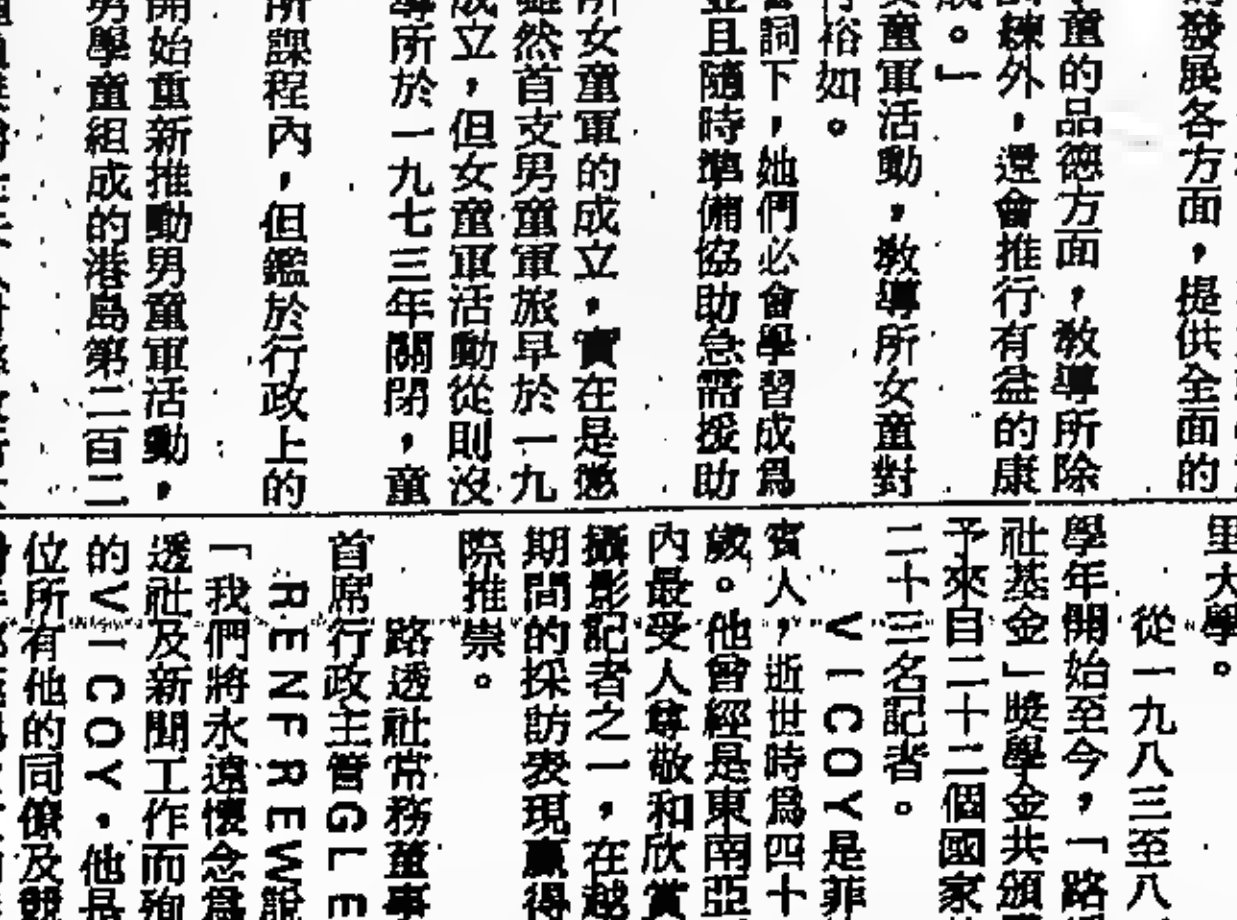 發展各方面，提供全面的
童的品德方面，教導所除
練外，還會推行有益的康
。」
童軍活動，教導所女童對
裕如。
詞下，她們必會學習成爲
且隨時準備協助急需援助
女童軍的成立，實在是懲
然首支男童軍旅早於一九
成立，但女童軍活動從則沒
導所於一九七三年關閉，童
所課程內，但鑑於行政上的
開始重新推動男童軍活動，
男學童組成的港島第二百二
里大學。
從一九八三至八
學年開始至今，「路
社基金」獎學金共頒
予來自二十二個國家
二十三名記者。
VICOY是菲
賓人，逝世時爲四十
歲。他曾經是東南亞
內最受人尊敬和欣賞
攝影記者之一，在越
期間的採訪表現贏得
際推崇。
路透社常務董事
首席行政主管GLE
RENFREW說
「我們將永遠懷念爲
透社及新聞工作而殉
的VICOY。他是
位所有他的同僚及競